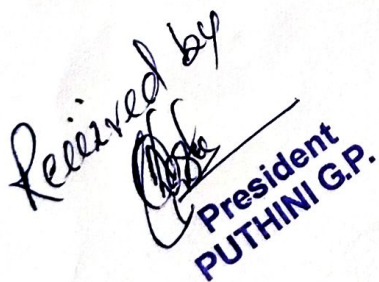 Received by
President
PUTHINI G.P.